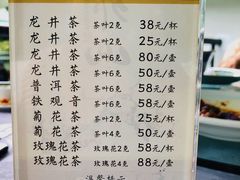 龙井茶 茶叶2克 38元/杯
龙井茶 茶叶2克 25元/杯
龙井茶 茶叶6克 80元/壶
龙井茶 茶叶6克 50元/壶
普洱茶 茶叶6克 58元/壶
铁观音 茶叶6克 50元/壶
菊花茶 茶叶2克 25元/杯
菊花茶 茶叶4克 50元/壶
玫瑰花茶 玫瑰花2克 58元/杯
玫瑰花茶 玫瑰花4克 88元/壶
温馨提示